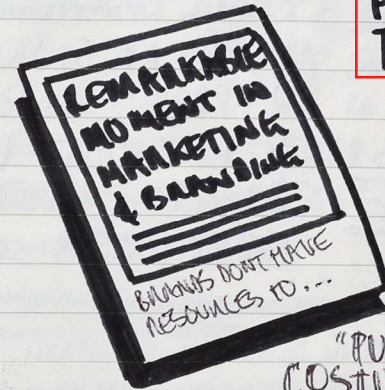 REMARKABLE
MOMENT IN
MARKETING
& BRANDING
BRANDS DONT HAVE
RESOURCES TO...
"PU
COSTL